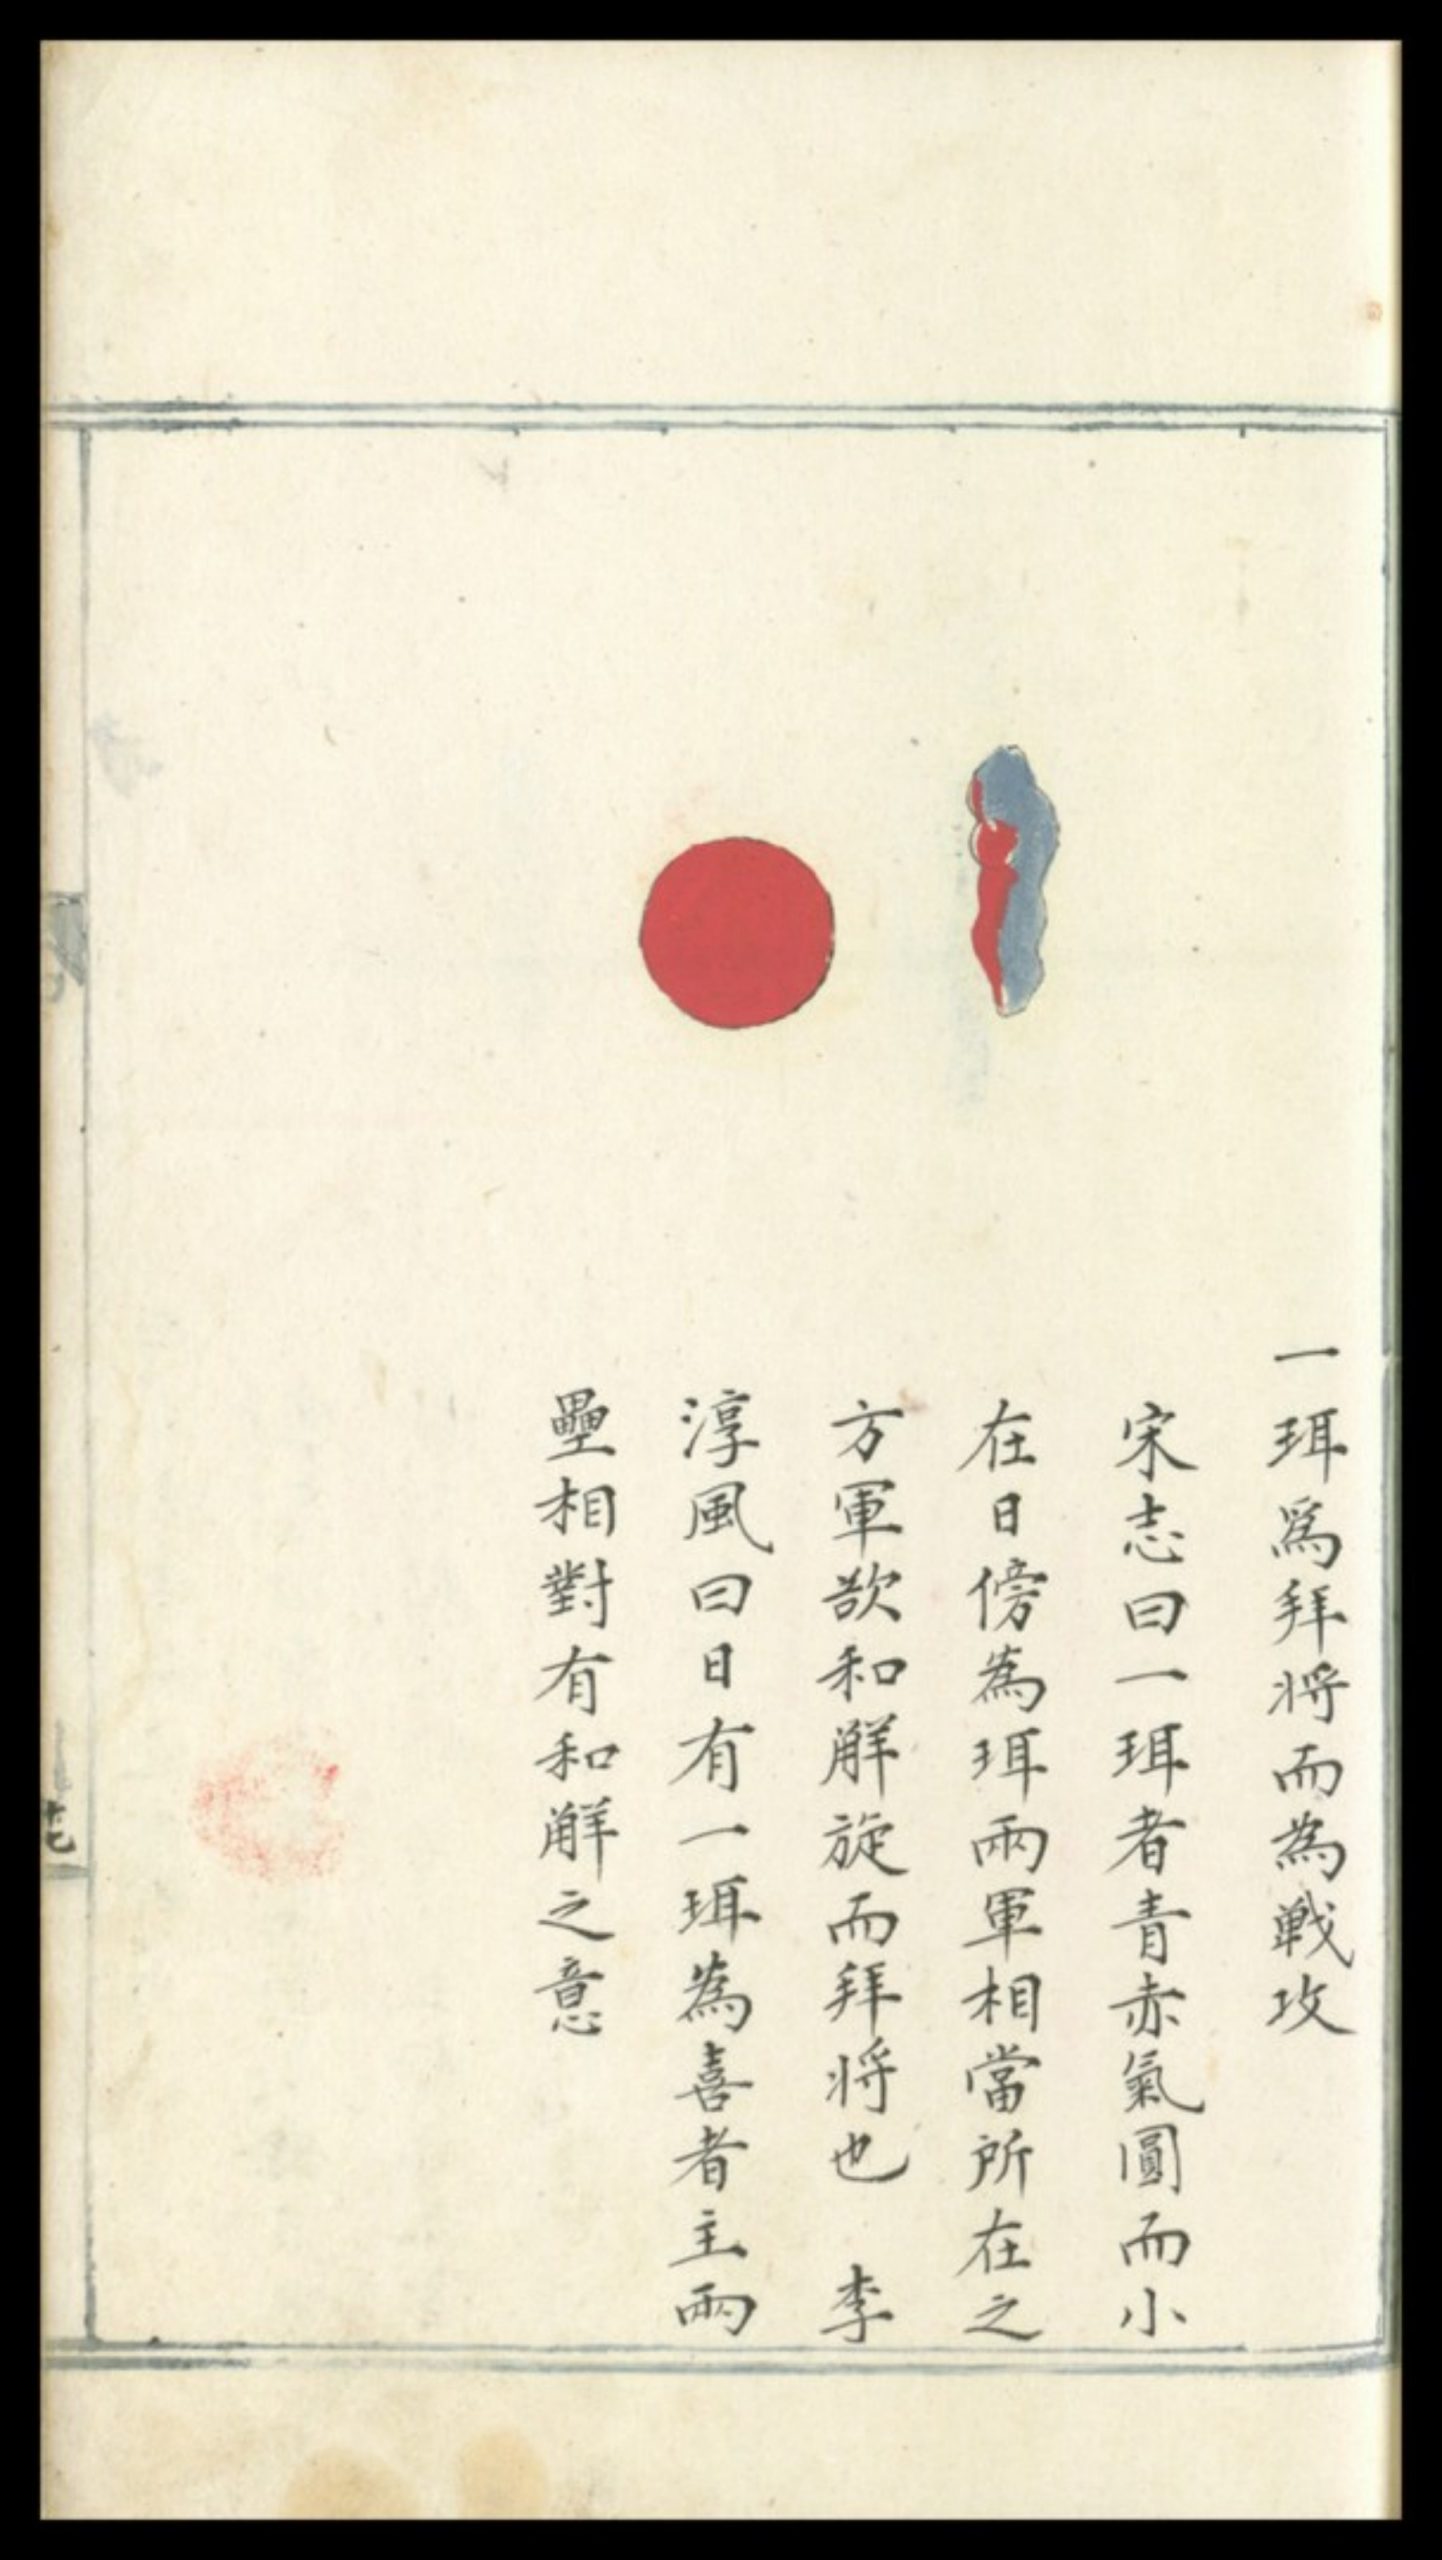 一珥爲拜将而為戦攻
宋志曰一珥者青赤氣圓而小
在日傍為珥兩軍相當所在之
方軍欲和觧旋而拜将也　李
淳風曰日有一珥為喜者主兩
壘相對有和觧之意